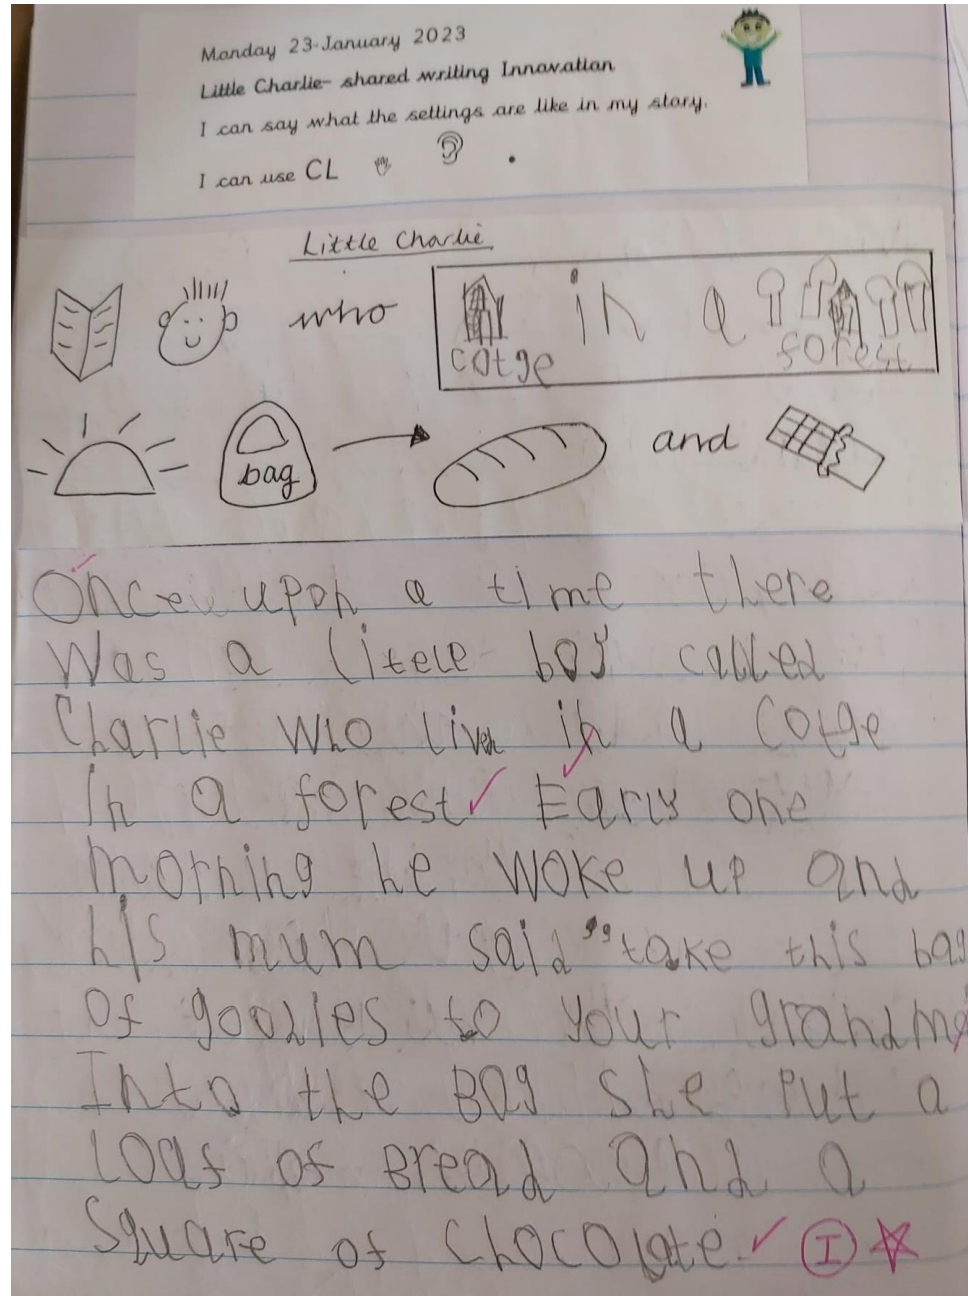 Monday 23-January 2023
Little Charlie- shared writing Innovation
I can say what the settings are like in my story.
I can use CL .
Little Charlie
who in a
cotge forest
bag and
Once upon a time there
Was a litele boy called
Charlie who liven in a cotge
In a forest Early one
morning he woke up and
his mum said "take this bag
of goodies to your grandma
Into the Bag she Put a
Loaf of Bread and a
Square of chocolate.
I